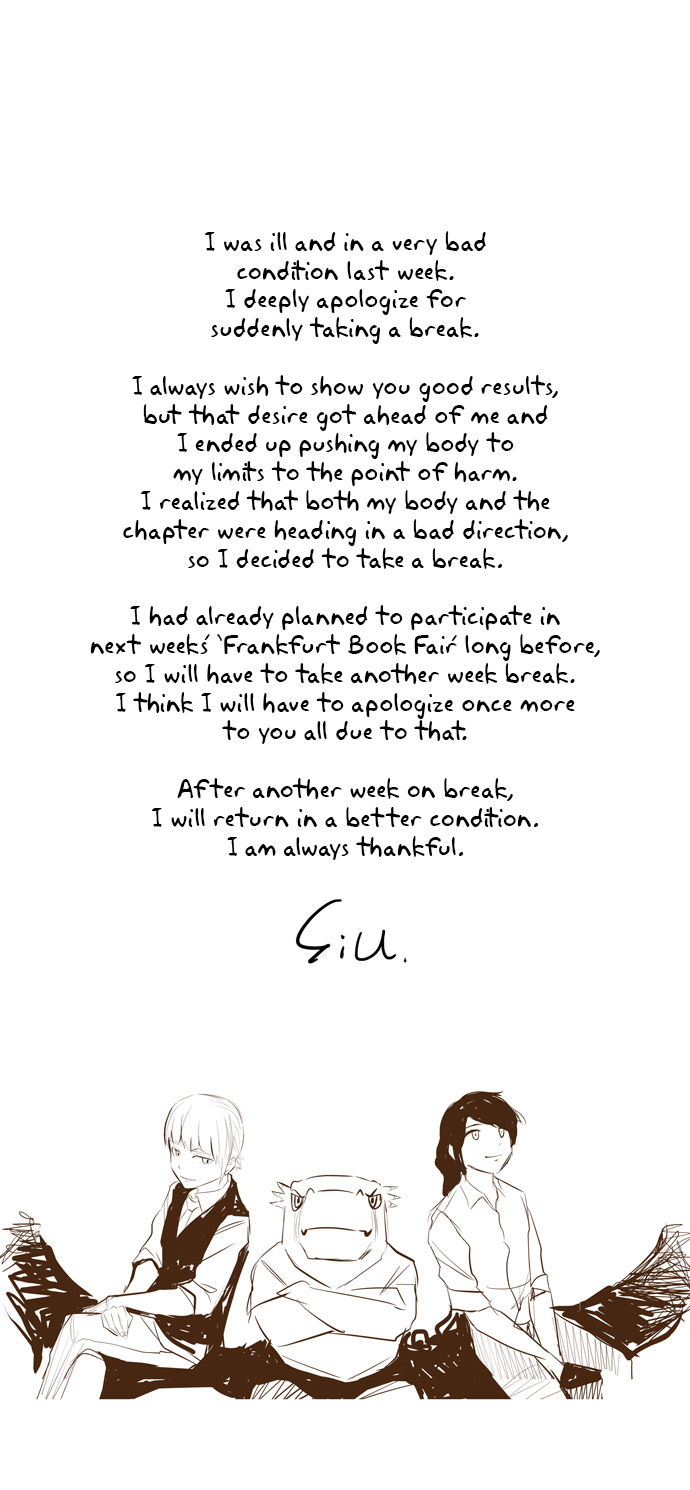 I was ill and in a very bad
condition last week.
I deeply apologize for
suddenly taking a break.
I always wish to show you good results,
but that desire got ahead of me and
I ended up pushing my body to
my limits to the point of harm.
I realized that both my body and the
chapter were heading in a bad direction,
so I decided to take a break.
I had already planned to participate in
next week´s `Frankfurt Book Fair´ long before,
so I will have to take another week break.
I think I will have to apologize once more
to you all due to that.
After another week on break,
I will return in a better condition.
I am always thankful.
SiU.